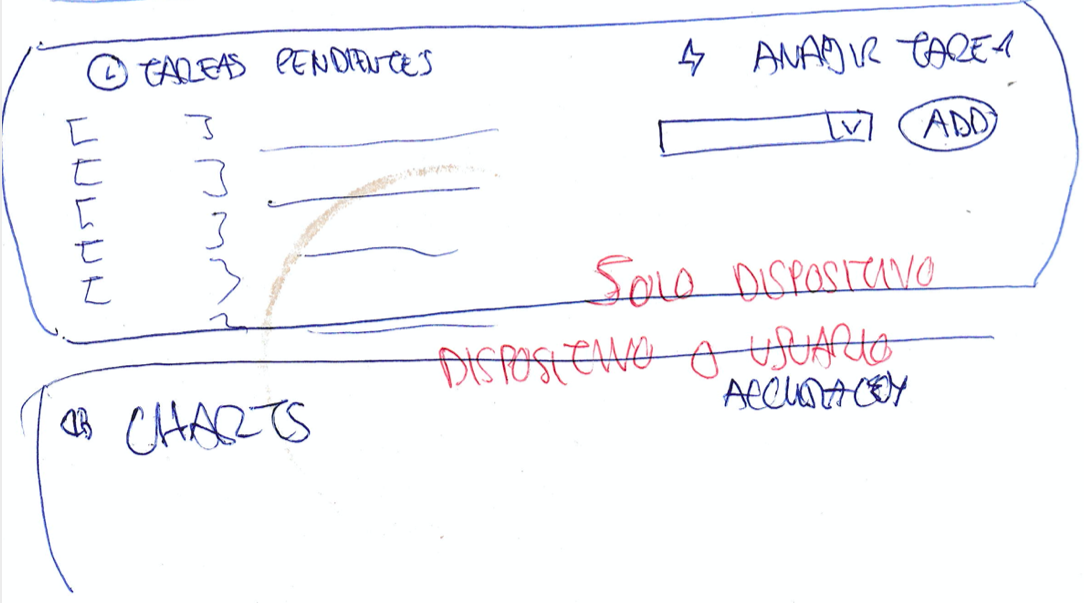 TAREAS PENDIENTES
AÑADIR TAREA
[ ]
[ ]
[ ]
[ ]
[ ]
ADD
SOLO DISPOSITIVO
DISPOSITIVO O USUARIO
ACCURACY
CHARTS